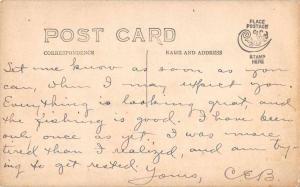 POST CARD
PLACE
POSTAGE
STAMP
HERE
CORRESPONDENCE
NAME AND ADDRESS
Let me know as soon as you
can, when I may expect you.
Everything is looking great, and
the fishing is good. I have been
only once as yet. I was more
tired than I realized, and am try-
ing to get rested.
Yours, C.E.B.